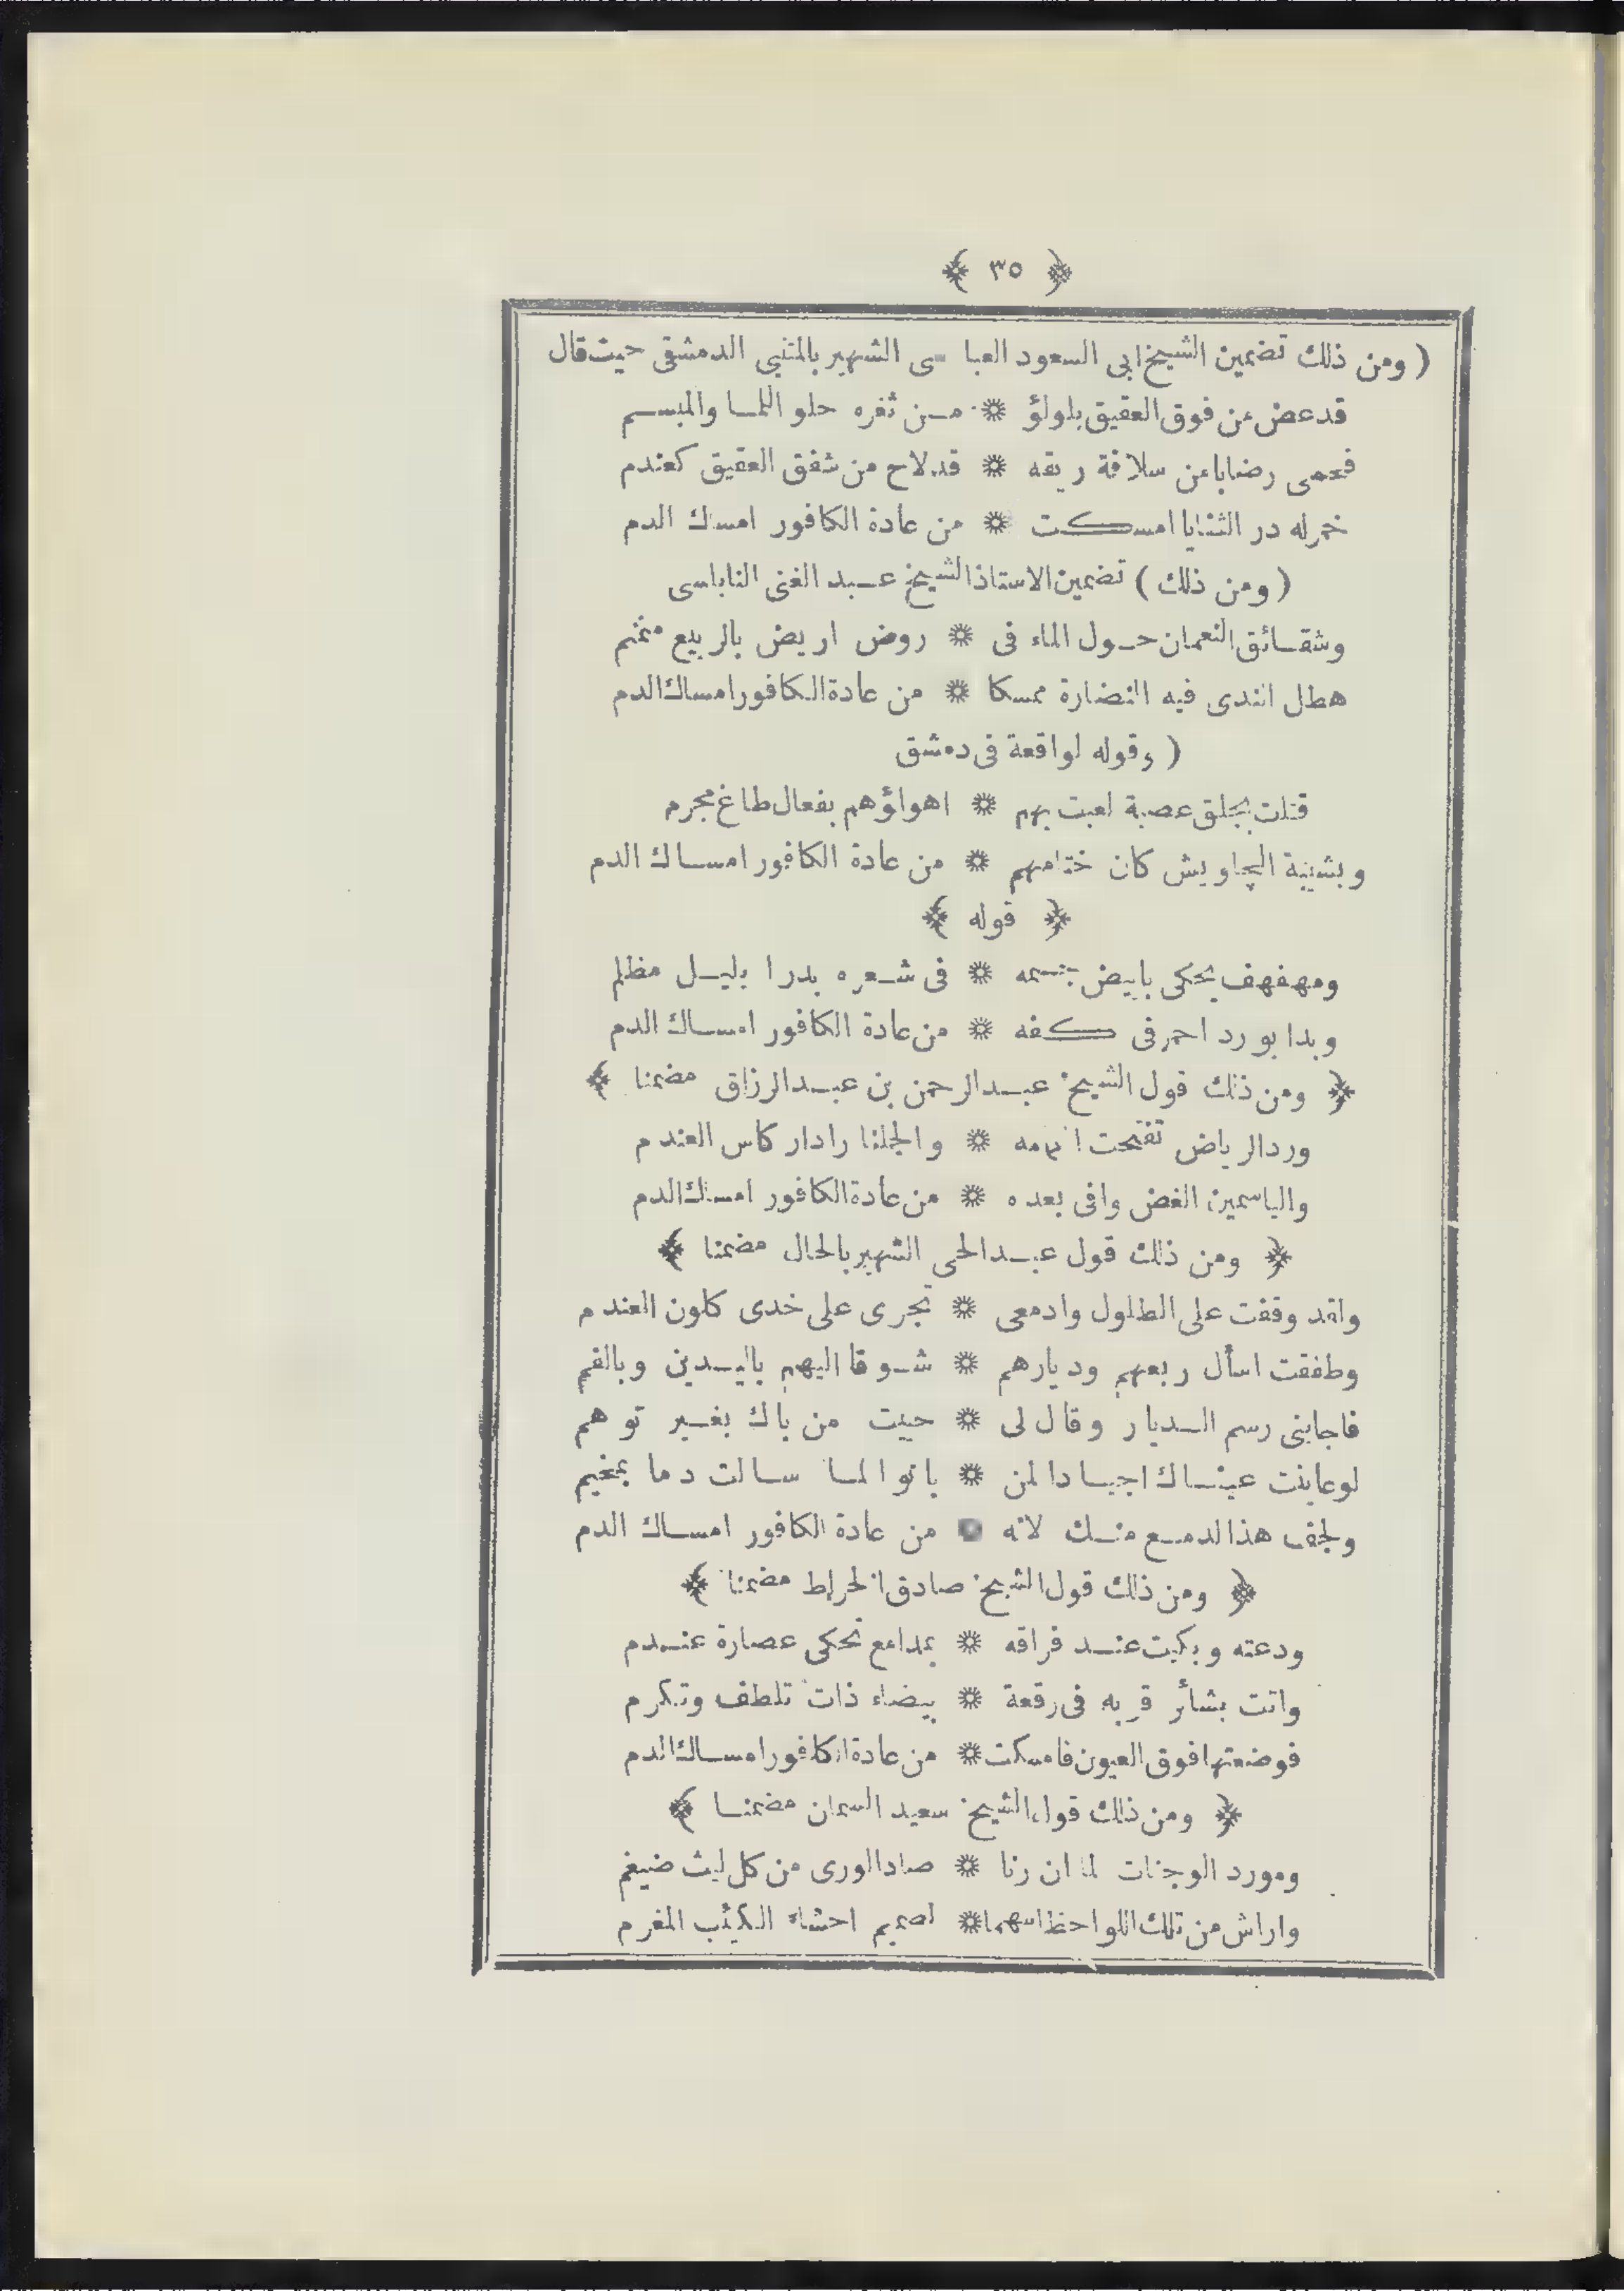 ﴿ ٣٥ ﴾
( ومن ذلك تضمين الشيخ ابى السعود العباسى الشهير بالمتنبى الدمشقى حيث قال
قد عض من فوق العقيق بلولؤ * من ثغره حلو اللما والمبسم
فحمى رضابا من سلافة ريقه * قد لاح من شفق العقيق كعندم
خمر له در الثنايا امسكت * من عادة الكافور امساك الدم
( ومن ذلك ) تضمين الاستاذ الشيخ عبد الغنى النابلسى
وشقائق النعمان حول الماء فى * روض اريض بالربيع منمنم
هطل الندى فيه النضارة ممسكا * من عادة الكافور امساك الدم
( وقوله لواقعة فى دمشق
قتلت بجلق عصبة لعبت بهم * اهواؤهم بفعال طاغ مجرم
وبشيبة الچاويش كان ختامهم * من عادة الكافور امساك الدم
﴿ قوله ﴾
ومهفهف يحكى بابيض جسمه * فى شعره بدرا بليل مظلم
وبدا بورد احمر فى كفه * من عادة الكافور امساك الدم
﴿ ومن ذلك قول الشيخ عبد الرحمن بن عبد الرزاق مضمنا ﴾
ورد الرياض تفتحت * والجلنار ادار كاس العندم
والياسمين الغض وافى بعده * من عادة الكافور امساك الدم
﴿ ومن ذلك قول عبد الحى الشهير بالخال مضمنا ﴾
ولقد وقفت على الطلول وادمعى * تجرى على خدى كلون العندم
وطفقت اسأل ربعهم وديارهم * شوقا اليهم باليدين وبالفم
فاجابنى رسم الديار وقال لى * حييت من باك بغير توهم
لو عاينت عيناك اجيادا لمن * بانوا لما سالت دما بمخيم
ولجف هذا الدمع منك لانه * من عادة الكافور امساك الدم
﴿ ومن ذلك قول الشيخ صادق الخراط مضمنا ﴾
ودعته وبكيت عند فراقه * بمدامع تحكى عصارة عندم
واتت بشائر قربه فى رقعة * بيضاء ذات تلطف وتكرم
فوضعتها فوق العيون فامسكت * من عادة الكافور امساك الدم
﴿ ومن ذلك قول الشيخ سعيد السمان مضمنا ﴾
ومورد الوجنات لما ان رنا * صاد الورى من كل ليث ضيغم
واراش من تلك اللواحظ اسهما * لصميم احشاء الكئيب المغرم